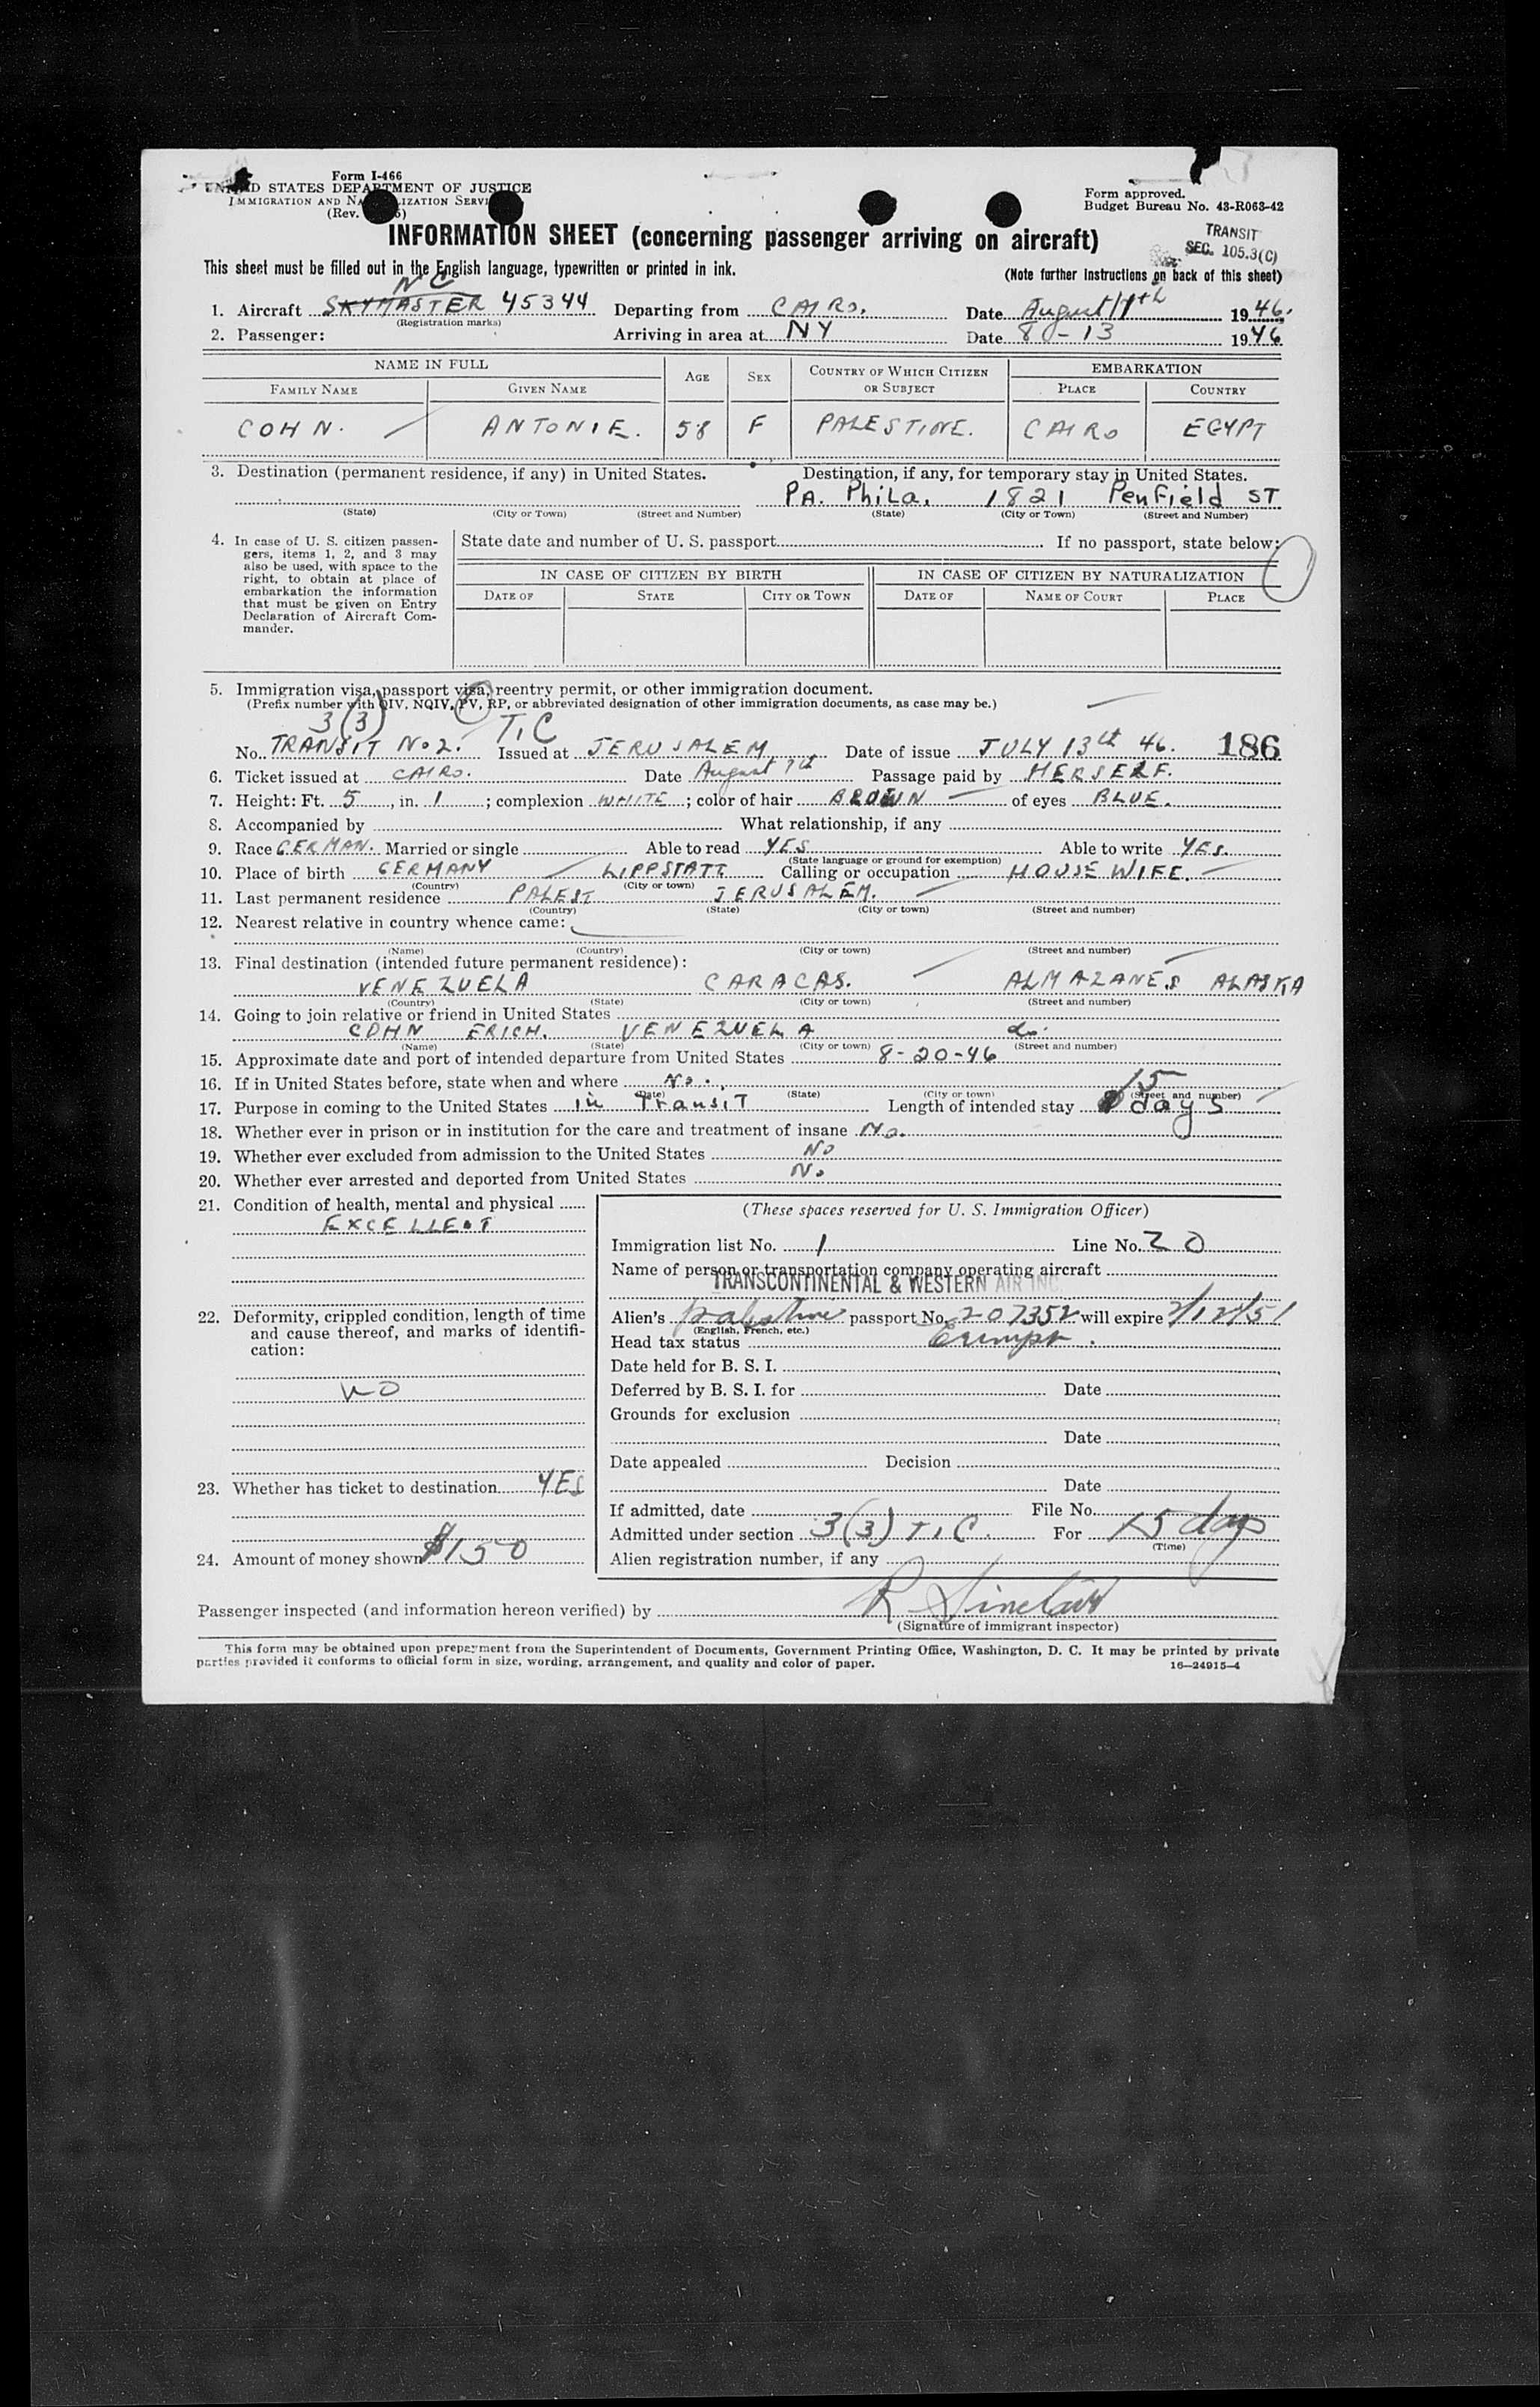 Form I-466
UNITED STATES DEPARTMENT OF JUSTICE
IMMIGRATION AND NATURALIZATION SERVICE
(Rev.
Form approved.
Budget Bureau No. 43-R063-42
INFORMATION SHEET (concerning passenger arriving on aircraft)
TRANSIT
SEC. 105.3(C)
This sheet must be filled out in the English language, typewritten or printed in ink.
(Note further instructions on back of this sheet)
NC
1. Aircraft SKYMASTER 45344 Departing from CAIRO. Date August 11th 1946.
(Registration marks)
2. Passenger: Arriving in area at NY Date 8-13 1946
NAME IN FULL AGE SEX COUNTRY OF WHICH CITIZEN OR SUBJECT EMBARKATION
FAMILY NAME GIVEN NAME PLACE COUNTRY
COHN. ANTONIE. 58 F PALESTINE. CAIRO EGYPT
3. Destination (permanent residence, if any) in United States. Destination, if any, for temporary stay in United States.
PA. Phila. 1821 Penfield ST
(State) (City or Town) (Street and Number) (State) (City or Town) (Street and Number)
4. In case of U. S. citizen passengers, items 1, 2, and 3 may also be used, with space to the right, to obtain at place of embarkation the information that must be given on Entry Declaration of Aircraft Commander.
State date and number of U. S. passport If no passport, state below:
IN CASE OF CITIZEN BY BIRTH IN CASE OF CITIZEN BY NATURALIZATION
DATE OF STATE CITY OR TOWN DATE OF NAME OF COURT PLACE
5. Immigration visa, passport visa, reentry permit, or other immigration document.
(Prefix number with QIV, NQIV, PV, RP, or abbreviated designation of other immigration documents, as case may be.)
3(3) T.C
No. TRANSIT No2. Issued at JERUSALEM Date of issue JULY 13th 46. 186
6. Ticket issued at CAIRO. Date August Passage paid by HERSELF.
7. Height: Ft. 5, in. 1; complexion WHITE; color of hair BROWN of eyes BLUE.
8. Accompanied by What relationship, if any
9. Race GERMAN. Married or single Able to read YES Able to write YES.
(State language or ground for exemption)
10. Place of birth GERMANY LIPPSTATT Calling or occupation HOUSE WIFE.
(Country) (City or town)
11. Last permanent residence PALEST JERUSALEM.
(Country) (State) (City or town) (Street and number)
12. Nearest relative in country whence came:
(Name) (Country) (City or town) (Street and number)
13. Final destination (intended future permanent residence):
VENEZUELA CARACAS. ALMAZANES ALASKA
(Country) (State) (City or town) (Street and number)
14. Going to join relative or friend in United States
COHN ERICH. VENEZUELA do.
(Name) (State) (City or town) (Street and number)
15. Approximate date and port of intended departure from United States 8-20-46
16. If in United States before, state when and where No.
(Date) (State) (City or town) (Street and number)
17. Purpose in coming to the United States in Transit Length of intended stay 15 days
18. Whether ever in prison or in institution for the care and treatment of insane No.
19. Whether ever excluded from admission to the United States NO
20. Whether ever arrested and deported from United States No
21. Condition of health, mental and physical
EXCELLENT
22. Deformity, crippled condition, length of time and cause thereof, and marks of identification:
NO
23. Whether has ticket to destination YES
24. Amount of money shown $150
(These spaces reserved for U. S. Immigration Officer)
Immigration list No. 1 Line No. 20
Name of person or transportation company operating aircraft
TRANSCONTINENTAL & WESTERN AIR INC.
Alien's Palestine passport No. 207352 will expire
(English, French, etc.)
Head tax status Exempt.
Date held for B. S. I.
Deferred by B. S. I. for Date
Grounds for exclusion
Date
Date appealed Decision
Date
If admitted, date File No.
Admitted under section 3(3) T.C. For 15 days
(Time)
Alien registration number, if any
Passenger inspected (and information hereon verified) by R Sinclair
(Signature of immigrant inspector)
This form may be obtained upon prepayment from the Superintendent of Documents, Government Printing Office, Washington, D. C. It may be printed by private
parties provided it conforms to official form in size, wording, arrangement, and quality and color of paper.
16—24915-4